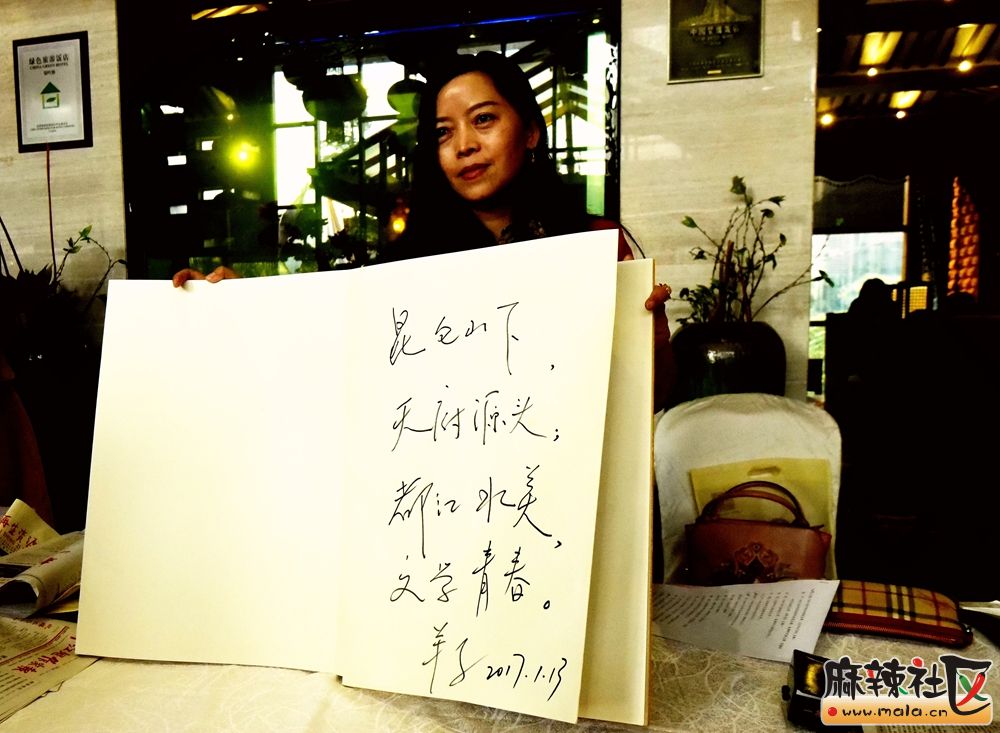 绿色旅游饭店
CHINA GREEN HOTEL
昆仑山下，
天府源头；
都江水美，
文学青春。
羊子 2017.1.13
麻辣社区
www.mala.cn